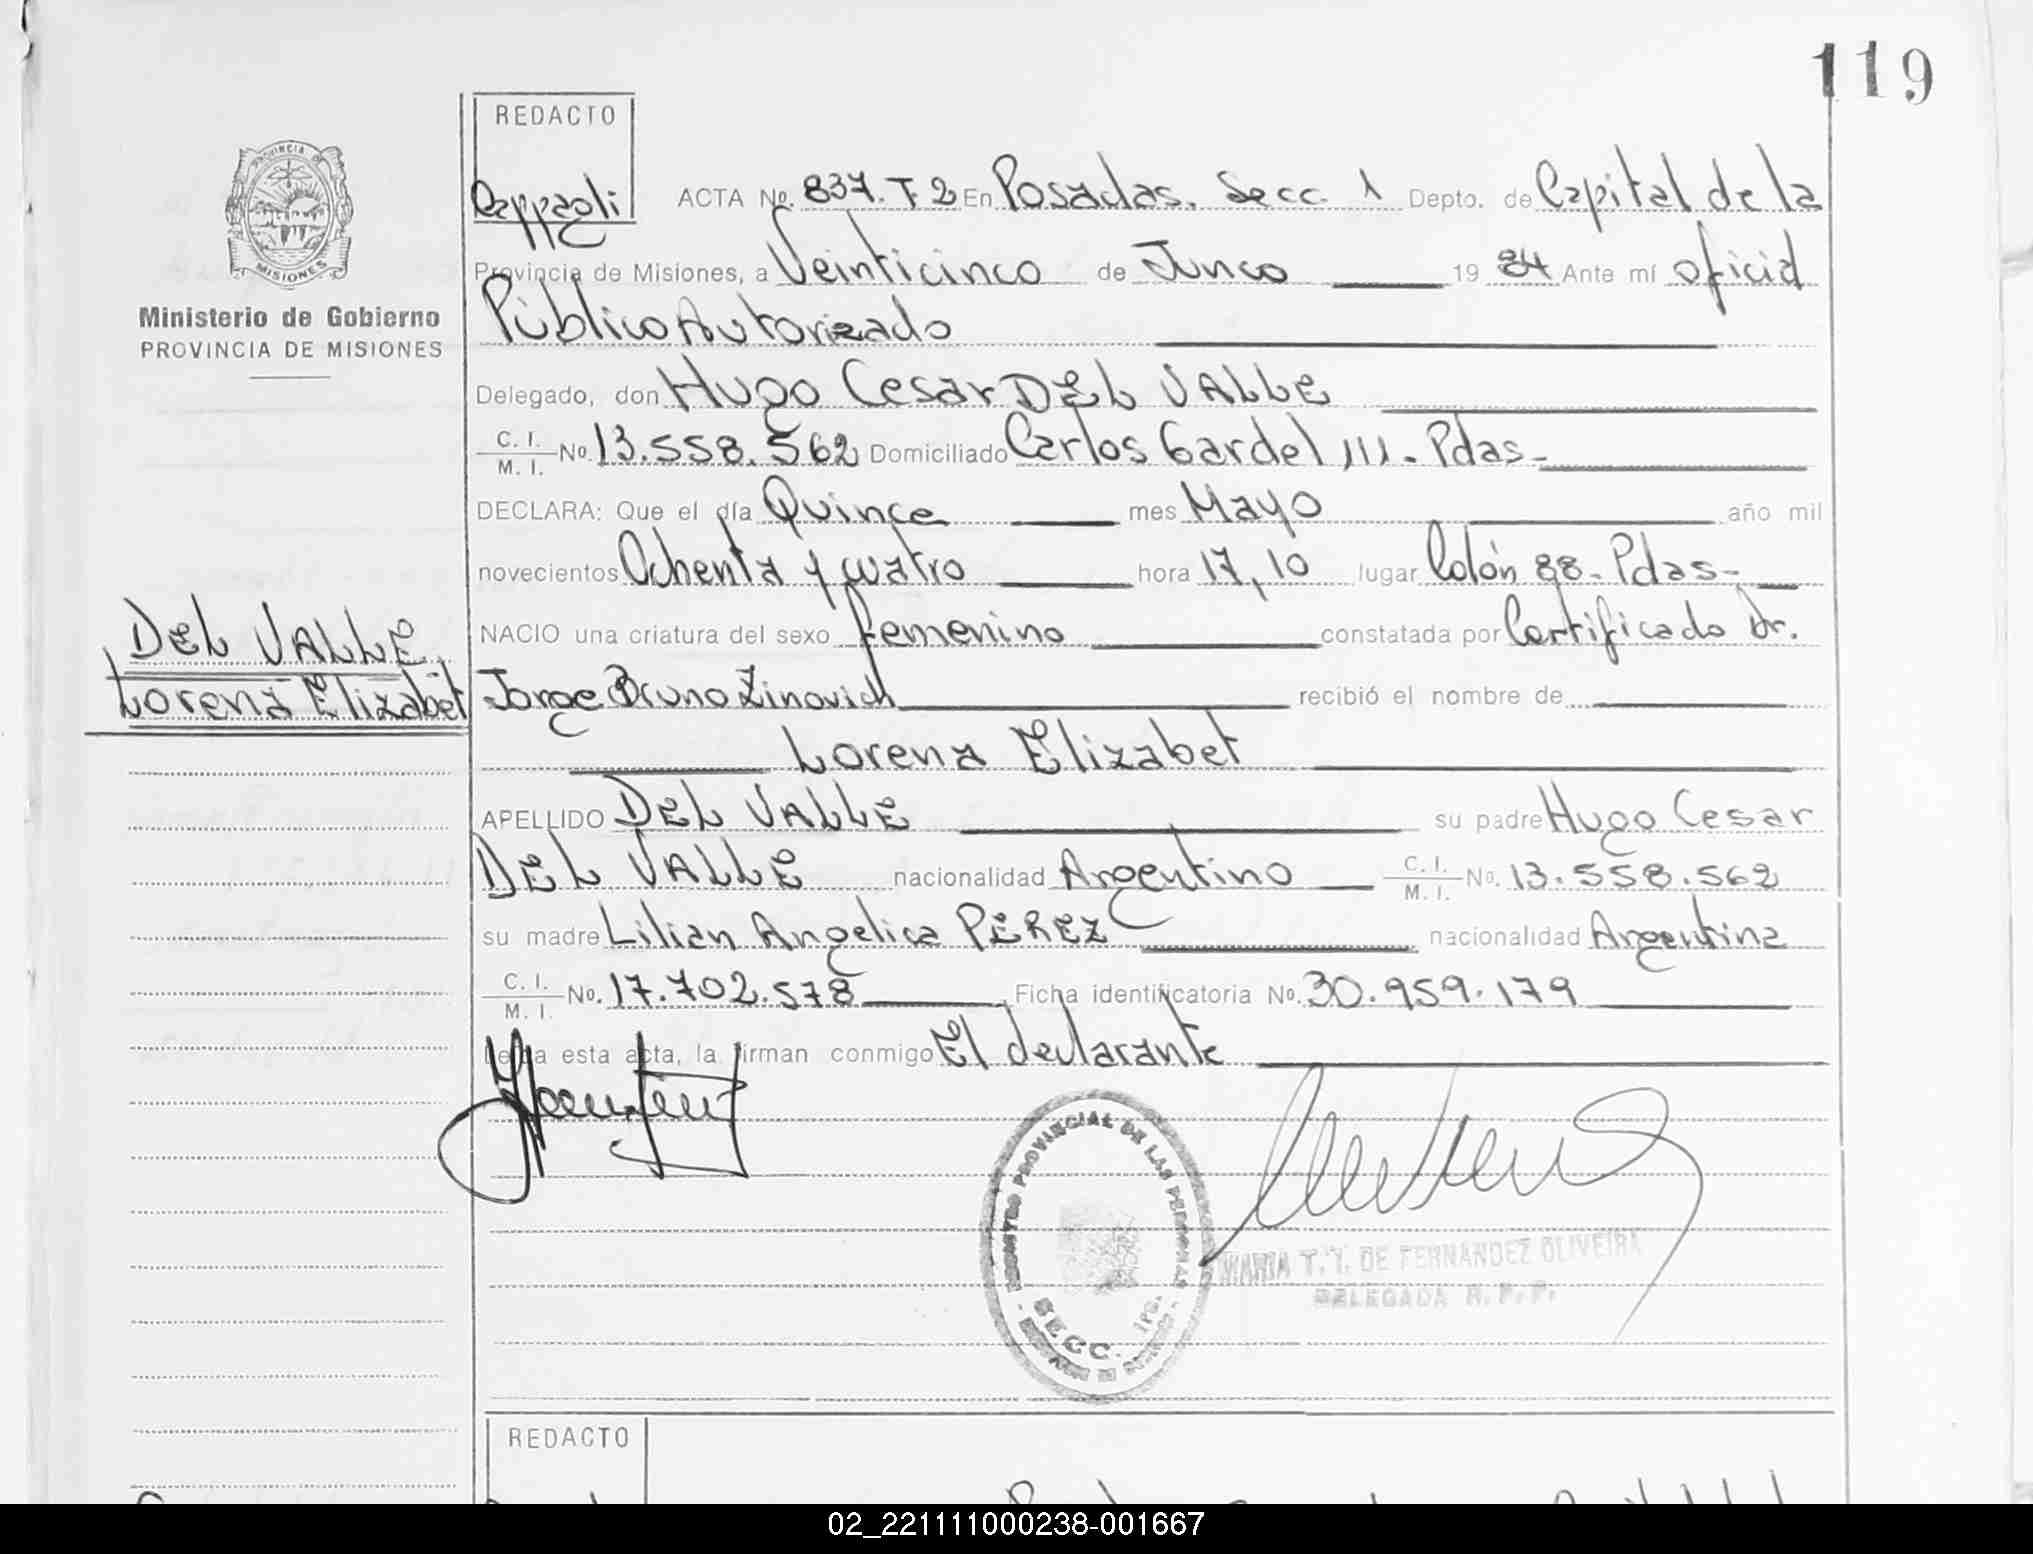 119
REDACTO
PROVINCIA DE
MISIONES
Ministerio de Gobierno
PROVINCIA DE MISIONES
ACTA No. 837. T 2 En Posadas. Secc. 1 Depto. de Capital de la
Provincia de Misiones, a Veinticinco de Junio 19 84 Ante mí oficial
Público Autorizado
Delegado, don Hugo Cesar DEL VALLE
C. I.
M. I. No. 13.558.562 Domiciliado Carlos Gardel 111 - Pdas -
DECLARA: Que el día Quince mes Mayo año mil
novecientos Ochenta y cuatro hora 17,10 lugar Colón 88 - Pdas -
NACIO una criatura del sexo femenino constatada por Certificado Dr.
DEL VALLE
Lorena Elizabet
Jorge Bruno Zinovich recibió el nombre de
Lorena Elizabet
APELLIDO DEL VALLE su padre Hugo Cesar
DEL VALLE nacionalidad Argentino C. I. M. I. No. 13.558.562
su madre Lilian Angelica PÉREZ nacionalidad Argentina
C. I.
M. I. No. 17.702.578 Ficha identificatoria No. 30.959.179
Leída esta acta, la firman conmigo El declarante
REGISTRO PROVINCIAL DE LAS PERSONAS
SECC. 1ra.
MARIA T. Y. DE FERNANDEZ OLIVEIRA
DELEGADA R. P. P.
REDACTO
02_221111000238-001667